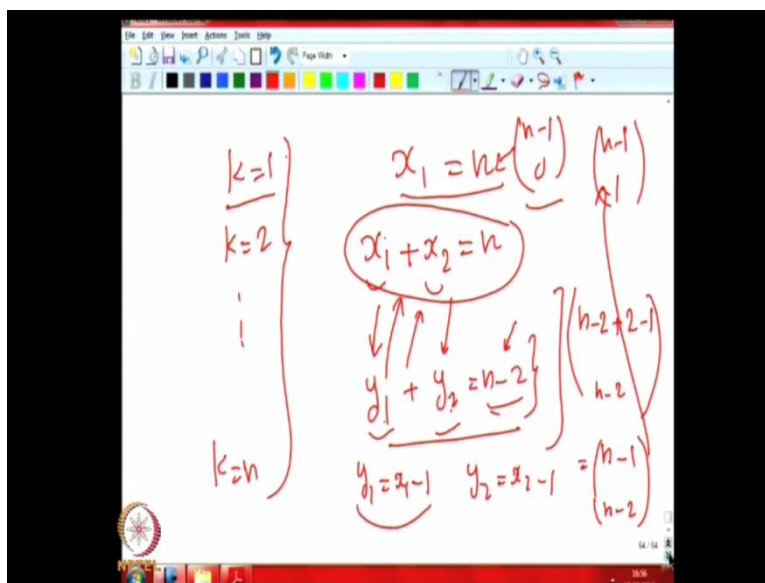 File Edit View Insert Actions Tools Help
Page Width
B I
k=1 x₁ = n (n-1 0) (n-1 1)
k=2 x₁ + x₂ = n
y₁ + y₂ = n-2 (n-2+2-1 n-2)
k=n y₁ = x₁-1 y₂ = x₂-1 = (n-1 n-2)
64 / 64
NPTEL
16:56